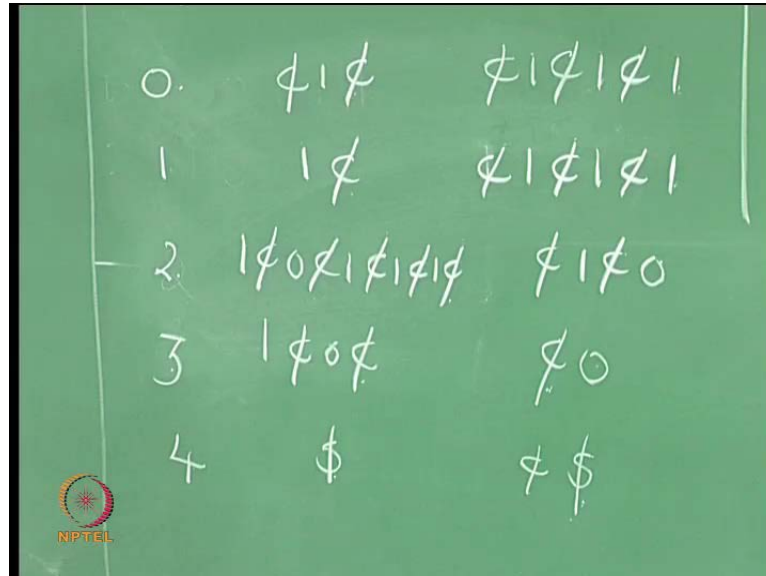 0. ¢1¢ ¢1¢1¢1
1 1¢ ¢1¢1¢1
2. 1¢0¢1¢1¢1¢ ¢1¢0
3 1¢0¢ ¢0
4 $ ¢$
NPTEL